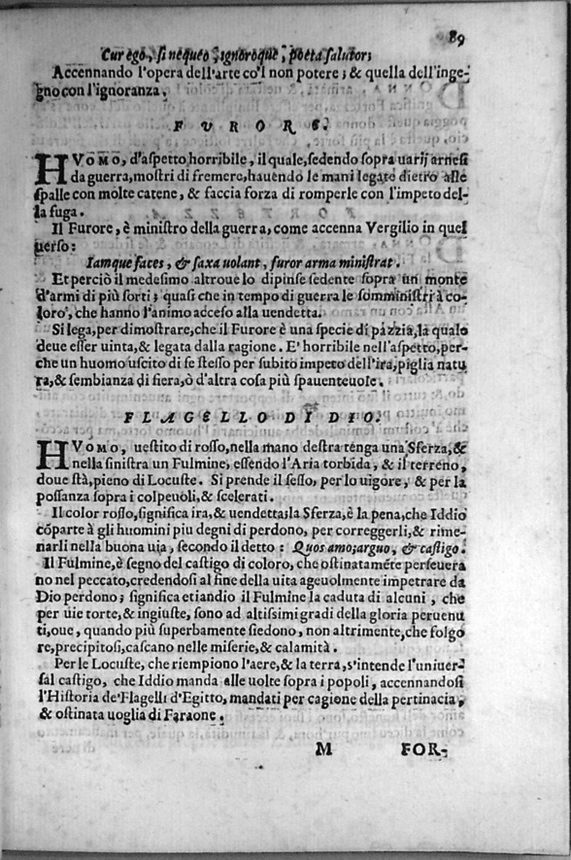 89
Cur ego, si nequeo, ignoroque, poeta salutor;
Accennando l'opera dell'arte co'l non potere; & quella dell'inge-
gno con l'ignoranza.
FVRORE.
HVOMO, d'aspetto horribile, il quale, sedendo sopra uarij arnesi
da guerra, mostri di fremere, hauendo le mani legate dietro alle
spalle con molte catene, & faccia forza di romperle con l'impeto del-
la fuga.
Il Furore, è ministro della guerra, come accenna Vergilio in quel
uerso:
Iamque faces, & saxa uolant, furor arma ministrat.
Et perciò il medesimo altroue lo dipinse sedente sopra un monte
d'armi di più sorti; quasi che in tempo di guerra le somministri à co-
loro, che hanno l'animo acceso alla uendetta.
Si lega, per dimostrare, che il Furore è una specie di pazzia, la quale
deue esser uinta, & legata dalla ragione. E' horribile nell'aspetto, per-
che un huomo uscito di se stesso per subito impeto dell'ira, piglia natu
ra, & sembianza di fiera, ò d'altra cosa più spauenteuole.
FLAGELLO DI DIO.
HVOMO, uestito di rosso, nella mano destra tenga una Sferza, &
nella sinistra un Fulmine, essendo l'Aria torbida, & il terreno,
doue stà, pieno di Locuste. Si prende il sesso, per lo uigore, & per la
possanza sopra i colpeuoli, & scelerati.
Il color rosso, significa ira, & uendetta; la Sferza, è la pena, che Iddio
cõparte à gli huomini piu degni di perdono, per correggerli, & rime-
narli nella buona uia, secondo il detto: Quos amo; arguo, & castigo.
Il Fulmine, è segno del castigo di coloro, che ostinatamẽte perseuera
no nel peccato, credendosi al fine della uita ageuolmente impetrare da
Dio perdono; significa etiandio il Fulmine la caduta di alcuni, che
per uie torte, & ingiuste, sono ad altissimi gradi della gloria peruenu
ti, oue, quando più superbamente siedono, non altrimente, che folgo
re, precipitosi, cascano nelle miserie, & calamità.
Per le Locuste, che riempiono l'aere, & la terra, s'intende l'uniuer-
sal castigo, che Iddio manda alle uolte sopra i popoli, accennandosi
l'Historia de' Flagelli d'Egitto, mandati per cagione della pertinacia,
& ostinata uoglia di Faraone.
M FOR-